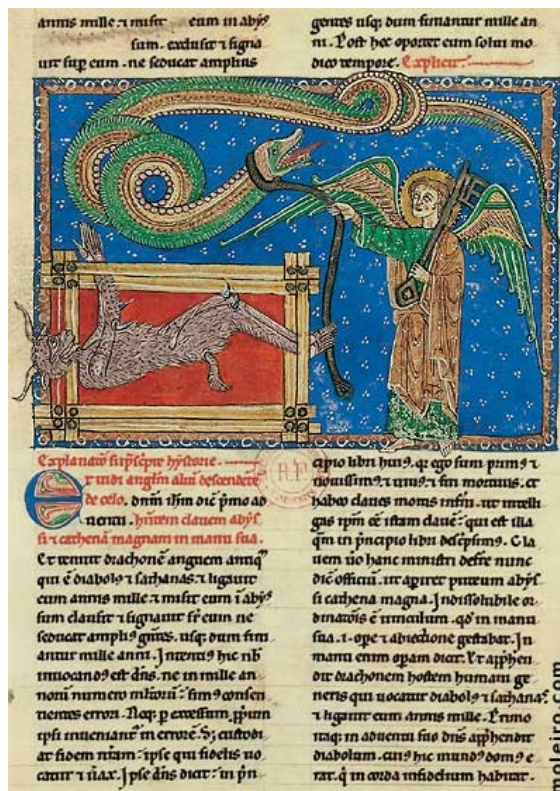 annis mille ⁊ misit eum in abys
sum. ⁊ clusit ⁊ signa
uit sup eum. ne seducat amplius
gentes usq; dum finiantur mille an
ni. Post hec oportet eum solui mo
dico tempore. Explicit
Explanatio supscripte hystorie.
Et uidi anglm aliū descendētē
de celo. dnm ihm dic̄ p̄mo ad
uentu. hntem clauem abys
si ⁊ cathenā magnam in manu sua.
Et tenuit drachonē anguem antiq
qui ē diabol⁹ ⁊ sathanas. ⁊ ligauit
eum annis mille ⁊ misit eum ī abys
sum clausit ⁊ signauit sr̄ eum ne
seducat ampli⁹ gētes. usq; dum fini
antur mille anni. nb
inuocand⁹ est dn̄s. ne in mille an
norū numero
errori. Neq; p excessum
ipsi inueniant in errore. S; custodi
at fidem ipse qui fidelis uo
catur ⁊ uax. Ipse dn̄s dicit in pn
cipio libri hui⁹. qr ego sum prim⁹ ⁊
nouissim⁹. ⁊ uiu⁹ ⁊ fui mortuus. et
habeo claues mortis ⁊ infni. ut intelli
gas ipm eē istam clauē. qui est illa
qm in p̄ncipio libri desc̄psim⁹. Cla
uem uo hanc ministri nunc
dic̄ officiū. ut apiret puteum abys
si cathena magna. Indissolubile or
dinatōis ē uinculum. qd in manu
sua. i. ope ⁊ gestabat. In
manu enim opam dicit. Et app̄hen
dit drachonem hostem humani ge
neris qui uocatur diabol⁹ ⁊ sathanas.
⁊ ligauit eum annis mille. Primo
itaq; in aduentu suo dn̄s app̄hendit
diabolum. cui⁹ hic mund⁹ dom⁹ e
rat. q̄ in corda infidelium habitat.
R.F.
moleiro.com